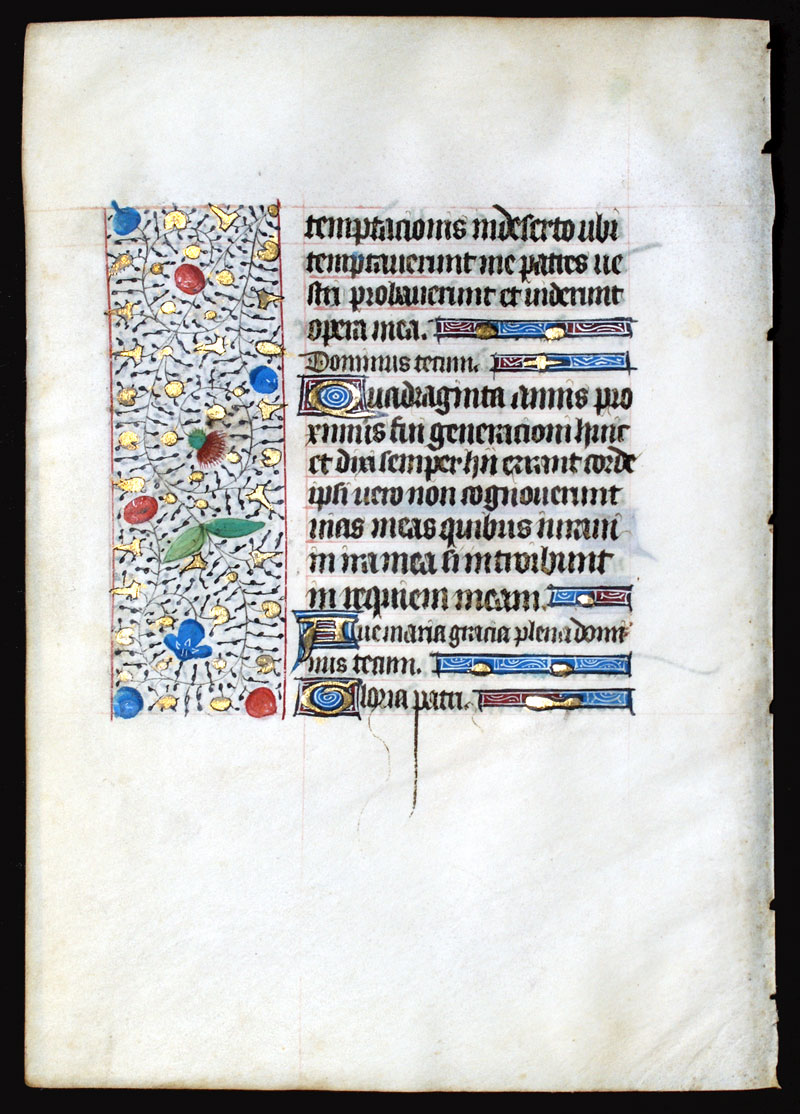 temptacionis in deserto ubi
temptaverunt me patres ve
stri probaverunt et viderunt
opera mea.
Dominus tecum.
Quadraginta annis pro
ximus fui generacioni huic
et dixi semper hii errant corde
ipsi vero non cognoverunt
vias meas quibus iuravi
in ira mea si introibunt
in requiem meam.
Ave maria gracia plena domi
nus tecum.
Gloria patri.